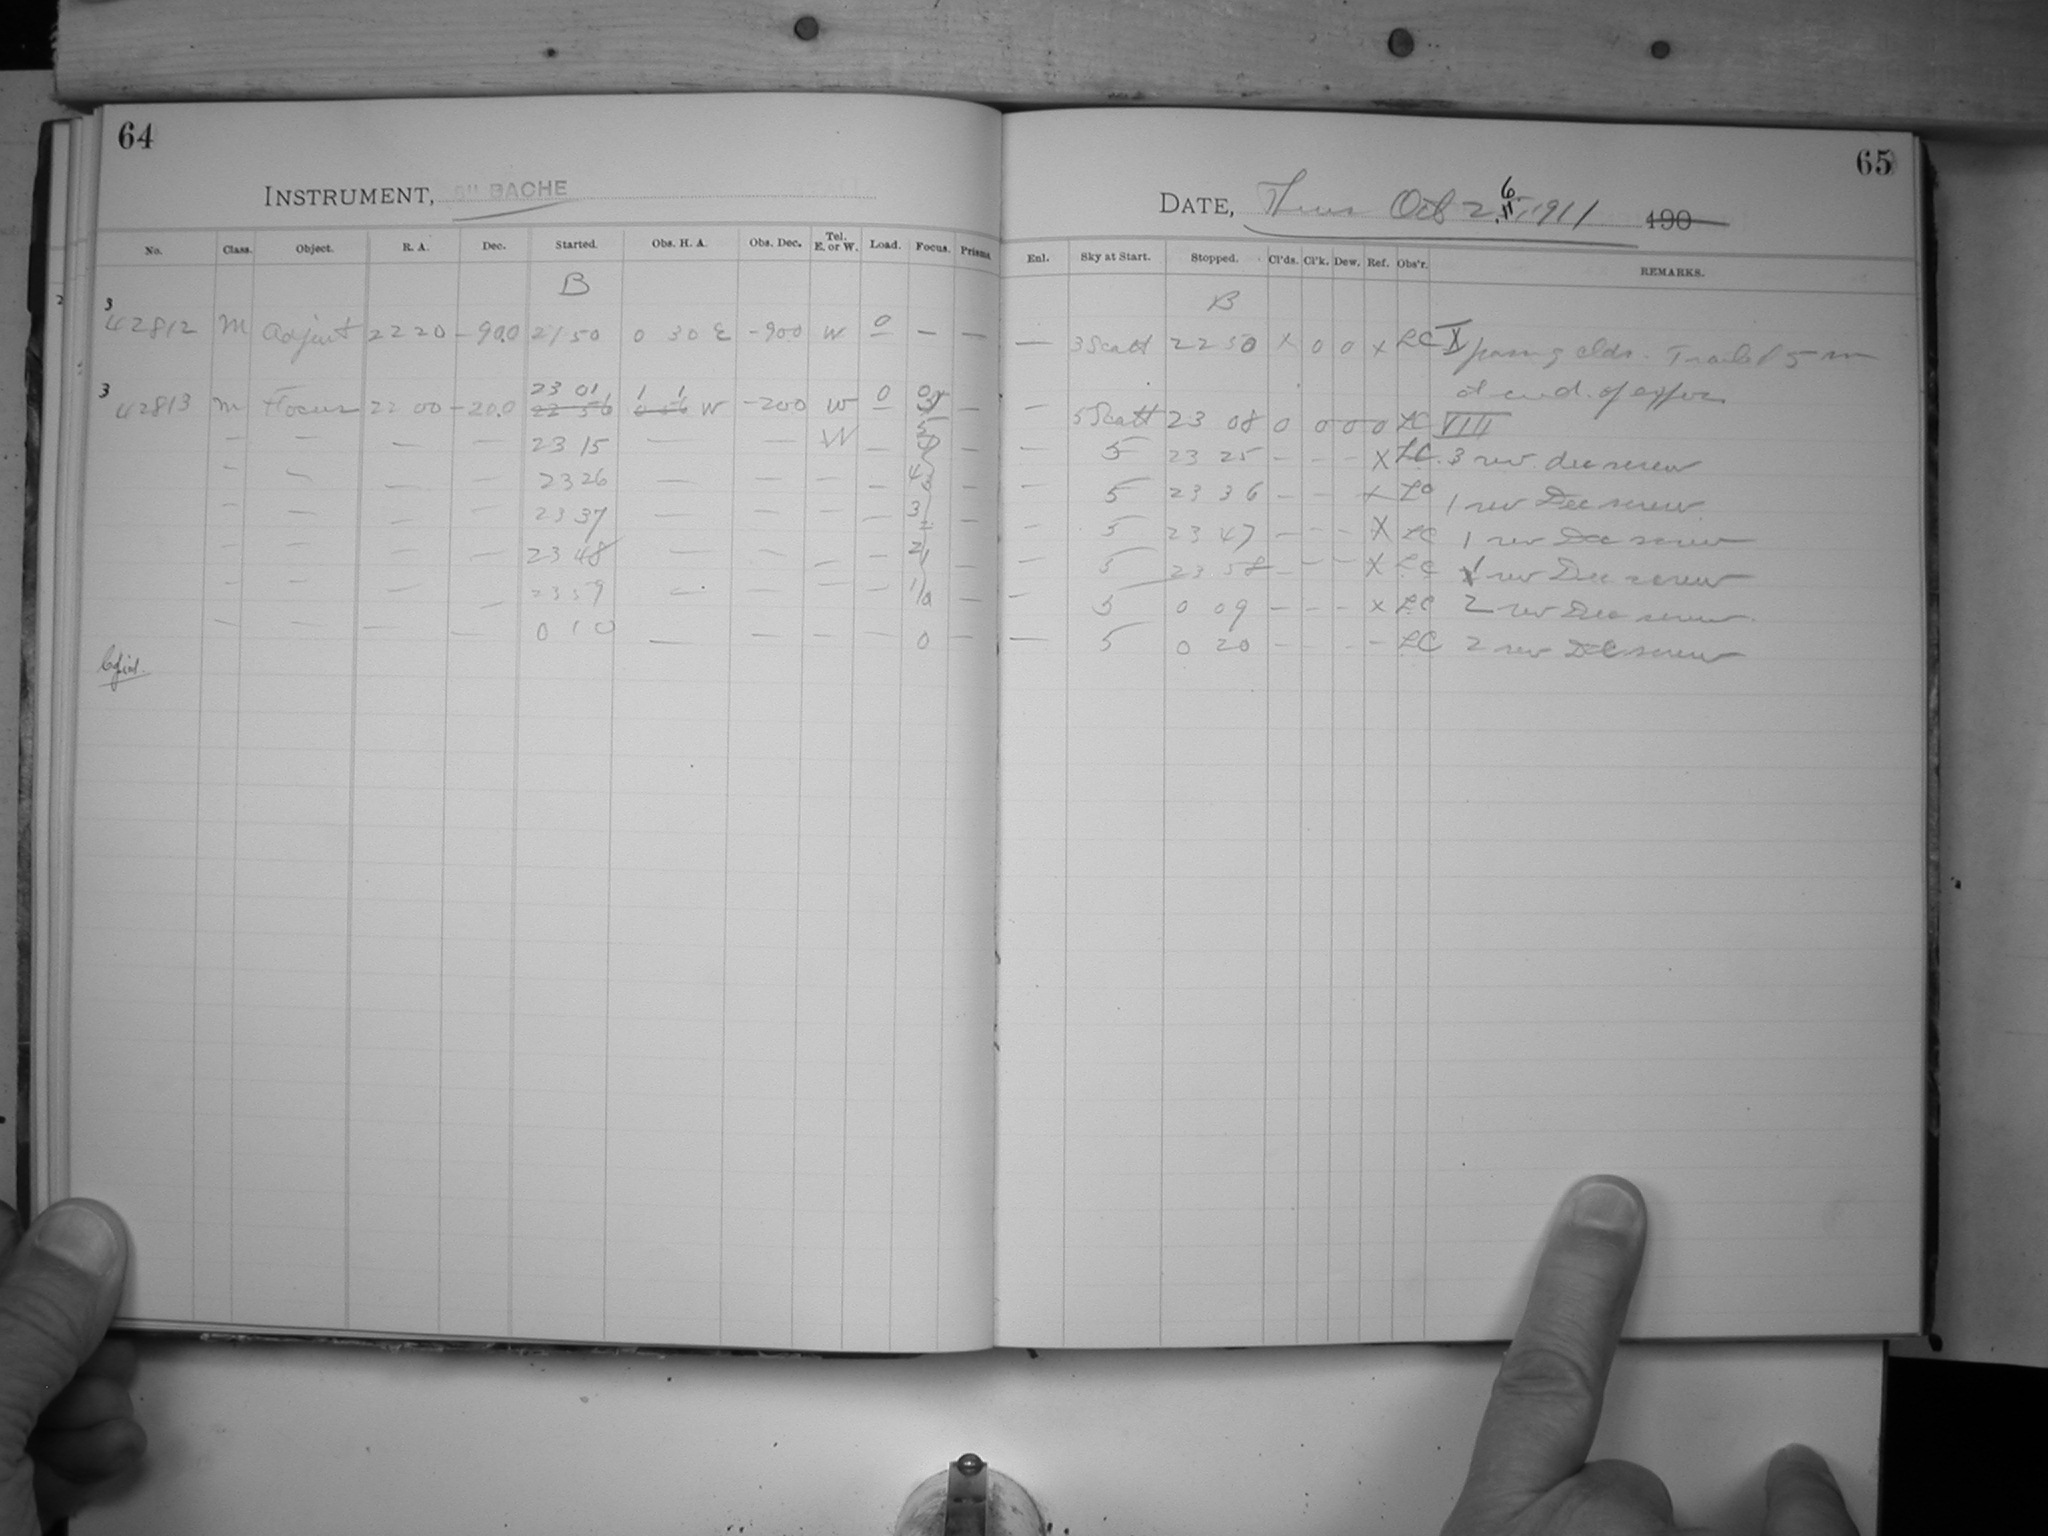 64
INSTRUMENT, BACHE
No. Class. Object. R. A. Dec. Started. Obs. H. A. Obs. Dec. Tel. E. or W. Load. Focus. Prisms.
B
3 42812 M Adjust 22 20 -90.0 21 50 0 30 E -900 W 0 — —
23 01 1 1
3 42813 M Focus 22 00 -20.0 22 56 0 56 W -200 W 0 —
— — — — 23 15 — — W —
— — — — 23 26 — — — — 4
— — — — 23 37 — — — — 3 —
— — — — 23 48 — — — — 2 —
— — — — 23 59 — — — — 1 —
— — — — 0 10 — — — — 0 —
65
DATE, Thurs Oct 26, 1911 190
Enl. Sky at Start. Stopped. Cl'ds. Cl'k. Dew. Ref. Obs'r. REMARKS.
B
— 3 Scatt 22 50 X 0 0 X LC X passing clds. Trailed 5 m
at end of expos
— 5 Scatt 23 08 0 0 0 0 LC VIII
— 5 23 25 - - - X LC. 3 rev. dec screw
— 5 23 36 - - - X LC 1 rev Dec screw
— 5 23 47 - - - X LC 1 rev Dec screw
— 5 23 58 - - - X LC 1 rev Dec screw
— 5 0 09 - - - X LC 2 rev Dec screw
— 5 0 20 - - - - LC 2 rev Dec screw